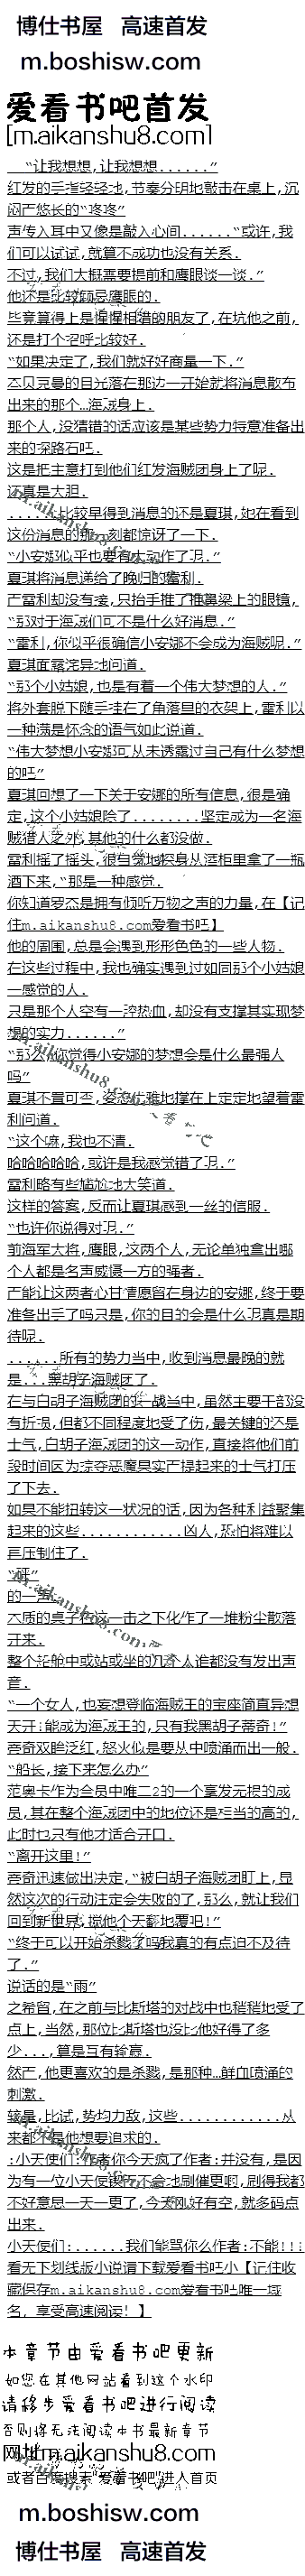 博仕书屋 高速首发
m.boshisw.com
爱看书吧首发
[m.aikanshu8.com]
“让我想想,让我想想......”
红发的手指轻轻地,节奏分明地敲击在桌上,沉
闷而悠长的“咚咚”
声传入耳中又像是敲入心间......“或许,我
们可以试试,就算不成功也没有关系.
不过,我们大概需要提前和鹰眼谈一谈.”
他还是比较顾忌鹰眼的.
毕竟算得上是惺惺相惜的朋友了,在坑他之前,
还是打个招呼比较好.
“如果决定了,我们就好好商量一下.”
本贝克曼的目光落在那边一开始就将消息散布
出来的那个…海贼身上.
那个人,没猜错的话应该是某些势力特意准备出
来的探路石吧.
这是把主意打到他们红发海贼团身上了呢.
还真是大胆.
......比较早得到消息的还是夏琪,她在看到
这份消息的那一刻都惊讶了一下.
“小安娜似乎也要有大动作了呢.”
夏琪将消息递给了晚归的雷利.
而雷利却没有接,只抬手推了推鼻梁上的眼镜,
“那对于海贼们可不是什么好消息.”
“雷利,你似乎很确信小安娜不会成为海贼呢.”
夏琪面露诧异地问道.
“那个小姑娘,也是有着一个伟大梦想的人.”
将外套脱下随手挂在了角落里的衣架上,雷利以
一种满是怀念的语气如此说道.
“伟大梦想小安娜可从未透露过自己有什么梦想
的吧”
夏琪回想了一下关于安娜的所有信息,很是确
定,这个小姑娘除了........坚定成为一名海
贼猎人之外,其他的什么都没做.
雷利摇了摇头,很自觉地探身从酒柜里拿了一瓶
酒下来,“那是一种感觉.
你知道罗杰是拥有倾听万物之声的力量,在【记
住m.aikanshu8.com爱看书吧】
他的周围,总是会遇到形形色色的一些人物.
在这些过程中,我也确实遇到过如同那个小姑娘
一感觉的人.
只是那个人空有一腔热血,却没有支撑其实现梦
想的实力......”
“那么,你觉得小安娜的梦想会是什么最强人
吗”
夏琪不置可否,姿态优雅地撑在上定定地望着雷
利问道.
“这个嘛,我也不清.
哈哈哈哈哈,或许是我感觉错了呢.”
雷利略有些尴尬地大笑道.
这样的答案,反而让夏琪感到一丝的信服.
“也许你说得对呢.”
前海军大将,鹰眼,这两个人,无论单独拿出哪
个人都是名声威慑一方的强者.
而能让这两者心甘情愿留在身边的安娜,终于要
准备出手了吗只是,你的目的会是什么呢真是期
待呢.
......所有的势力当中,收到消息最晚的就
是...黑胡子海贼团了.
在与白胡子海贼团的一战当中,虽然主要干部没
有折损,但都不同程度地受了伤,最关键的还是
士气,白胡子海贼团的这一动作,直接将他们前
段时间因为掠夺恶魔果实而提起来的士气打压
了下去.
如果不能扭转这一状况的话,因为各种利益聚集
起来的这些............凶人,恐怕将难以
再压制住了.
“砰”
的一声.
木质的桌子在这一击之下化作了一堆粉尘散落
开来.
整个船舱中或站或坐的几个人谁都没有发出声
音.
“一个女人,也妄想登临海贼王的宝座简直异想
天开!能成为海贼王的,只有我黑胡子蒂奇!”
蒂奇双眸泛红,怒火似是要从中喷涌而出一般.
“船长,接下来怎么办”
范奥卡作为会员中唯二2的一个毫发无损的成
员,其在整个海贼团中的地位还是相当的高的,
此时也只有他才适合开口.
“离开这里!”
蒂奇迅速做出决定,“被白胡子海贼团盯上,显
然这次的行动注定会失败的了,那么,就让我们
回到新世界,搅他个天翻地覆吧!”
“终于可以开始杀戮了吗我真的有点迫不及待
了.”
说话的是“雨”
之希留,在之前与比斯塔的对战中也稍稍地受了
点上,当然,那位比斯塔也没比他好得了多
少...,算是互有输赢.
然而,他更喜欢的是杀戮,是那种…鲜血喷涌的
刺激.
较量,比试,势均力敌,这些............从
来都不是他想要追求的.
:小天使们:作者你今天疯了作者:并没有,是因
为有一位小天使锲而不舍地刷催更啊,刷得我都
不好意思一天一更了,今天刚好有空,就多码点
出来.
小天使们:......我们能骂你么作者:不能!!!
看无下划线版小说请下载爱看书吧小【记住收
藏保存m.aikanshu8.com爱看书吧唯一域
名，享受高速阅读！】
本章节由爱看书吧更新
如您在其他网站看到这个水印
请移步爱看书吧进行阅读
否则将无法阅读本书最新章节
网址m.aikanshu8.com
或者百度搜索“爱看书吧”进入首页
m.boshisw.com
博仕书屋 高速首发